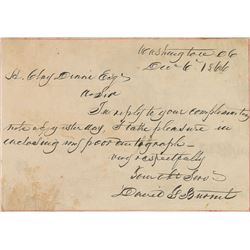 Washington DC
Dec 6 1866
H. Clay Deane Esq
D Sir
In reply to your complimentary
note of yesterday, I take pleasure in
enclosing my poor autograph—
very respectfully
Your Obt Servt
David G Burnet